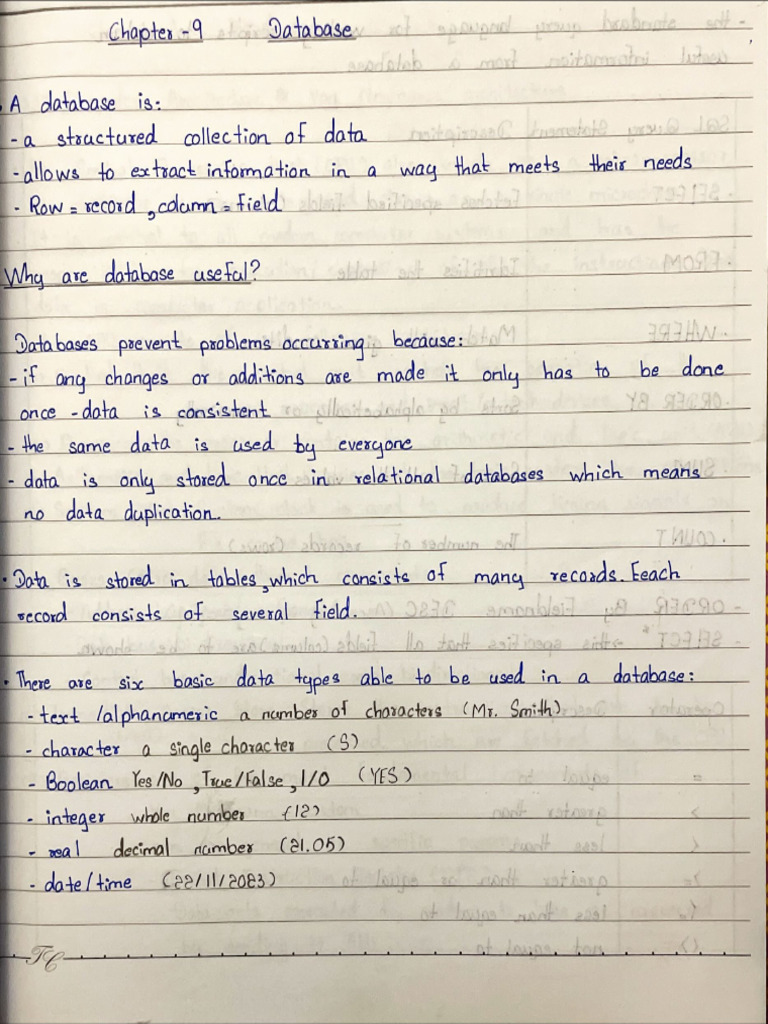 Chapter-9 Database
• A database is:
- a structured collection of data
- allows to extract information in a way that meets their needs
- Row = record, column = field
Why are database useful?
Databases prevent problems occurring because:
- if any changes or additions are made it only has to be done
once - data is consistent
- the same data is used by everyone
- data is only stored once in relational databases which means
no data duplication.
• Data is stored in tables, which consists of many records. Eeach
record consists of several field.
• There are six basic data types able to be used in a database:
- text /alphanumeric a number of characters (Mr. Smith)
- character a single character (S)
- Boolean Yes/No, True/False, 1/0 (YES)
- integer whole number (12)
- real decimal number (21.05)
- date/time (22/11/2023)
TC